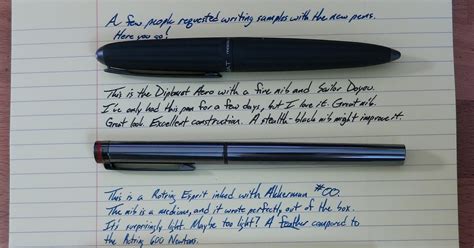 A few people requested writing samples with the new pens.
Here you go!
This is the Diplomat Aero with a fine nib and Sailor Doyou.
I've only had this pen for a few days, but I love it. Great nib.
Great look. Excellent construction. A stealth-black nib might improve it.
This is a Rotring Esprit inked with Akkerman #00.
The nib is a medium, and it wrote perfectly out of the box.
It's surprisingly light. Maybe too light? A feather compared to
the Rotring 600 Newtons.